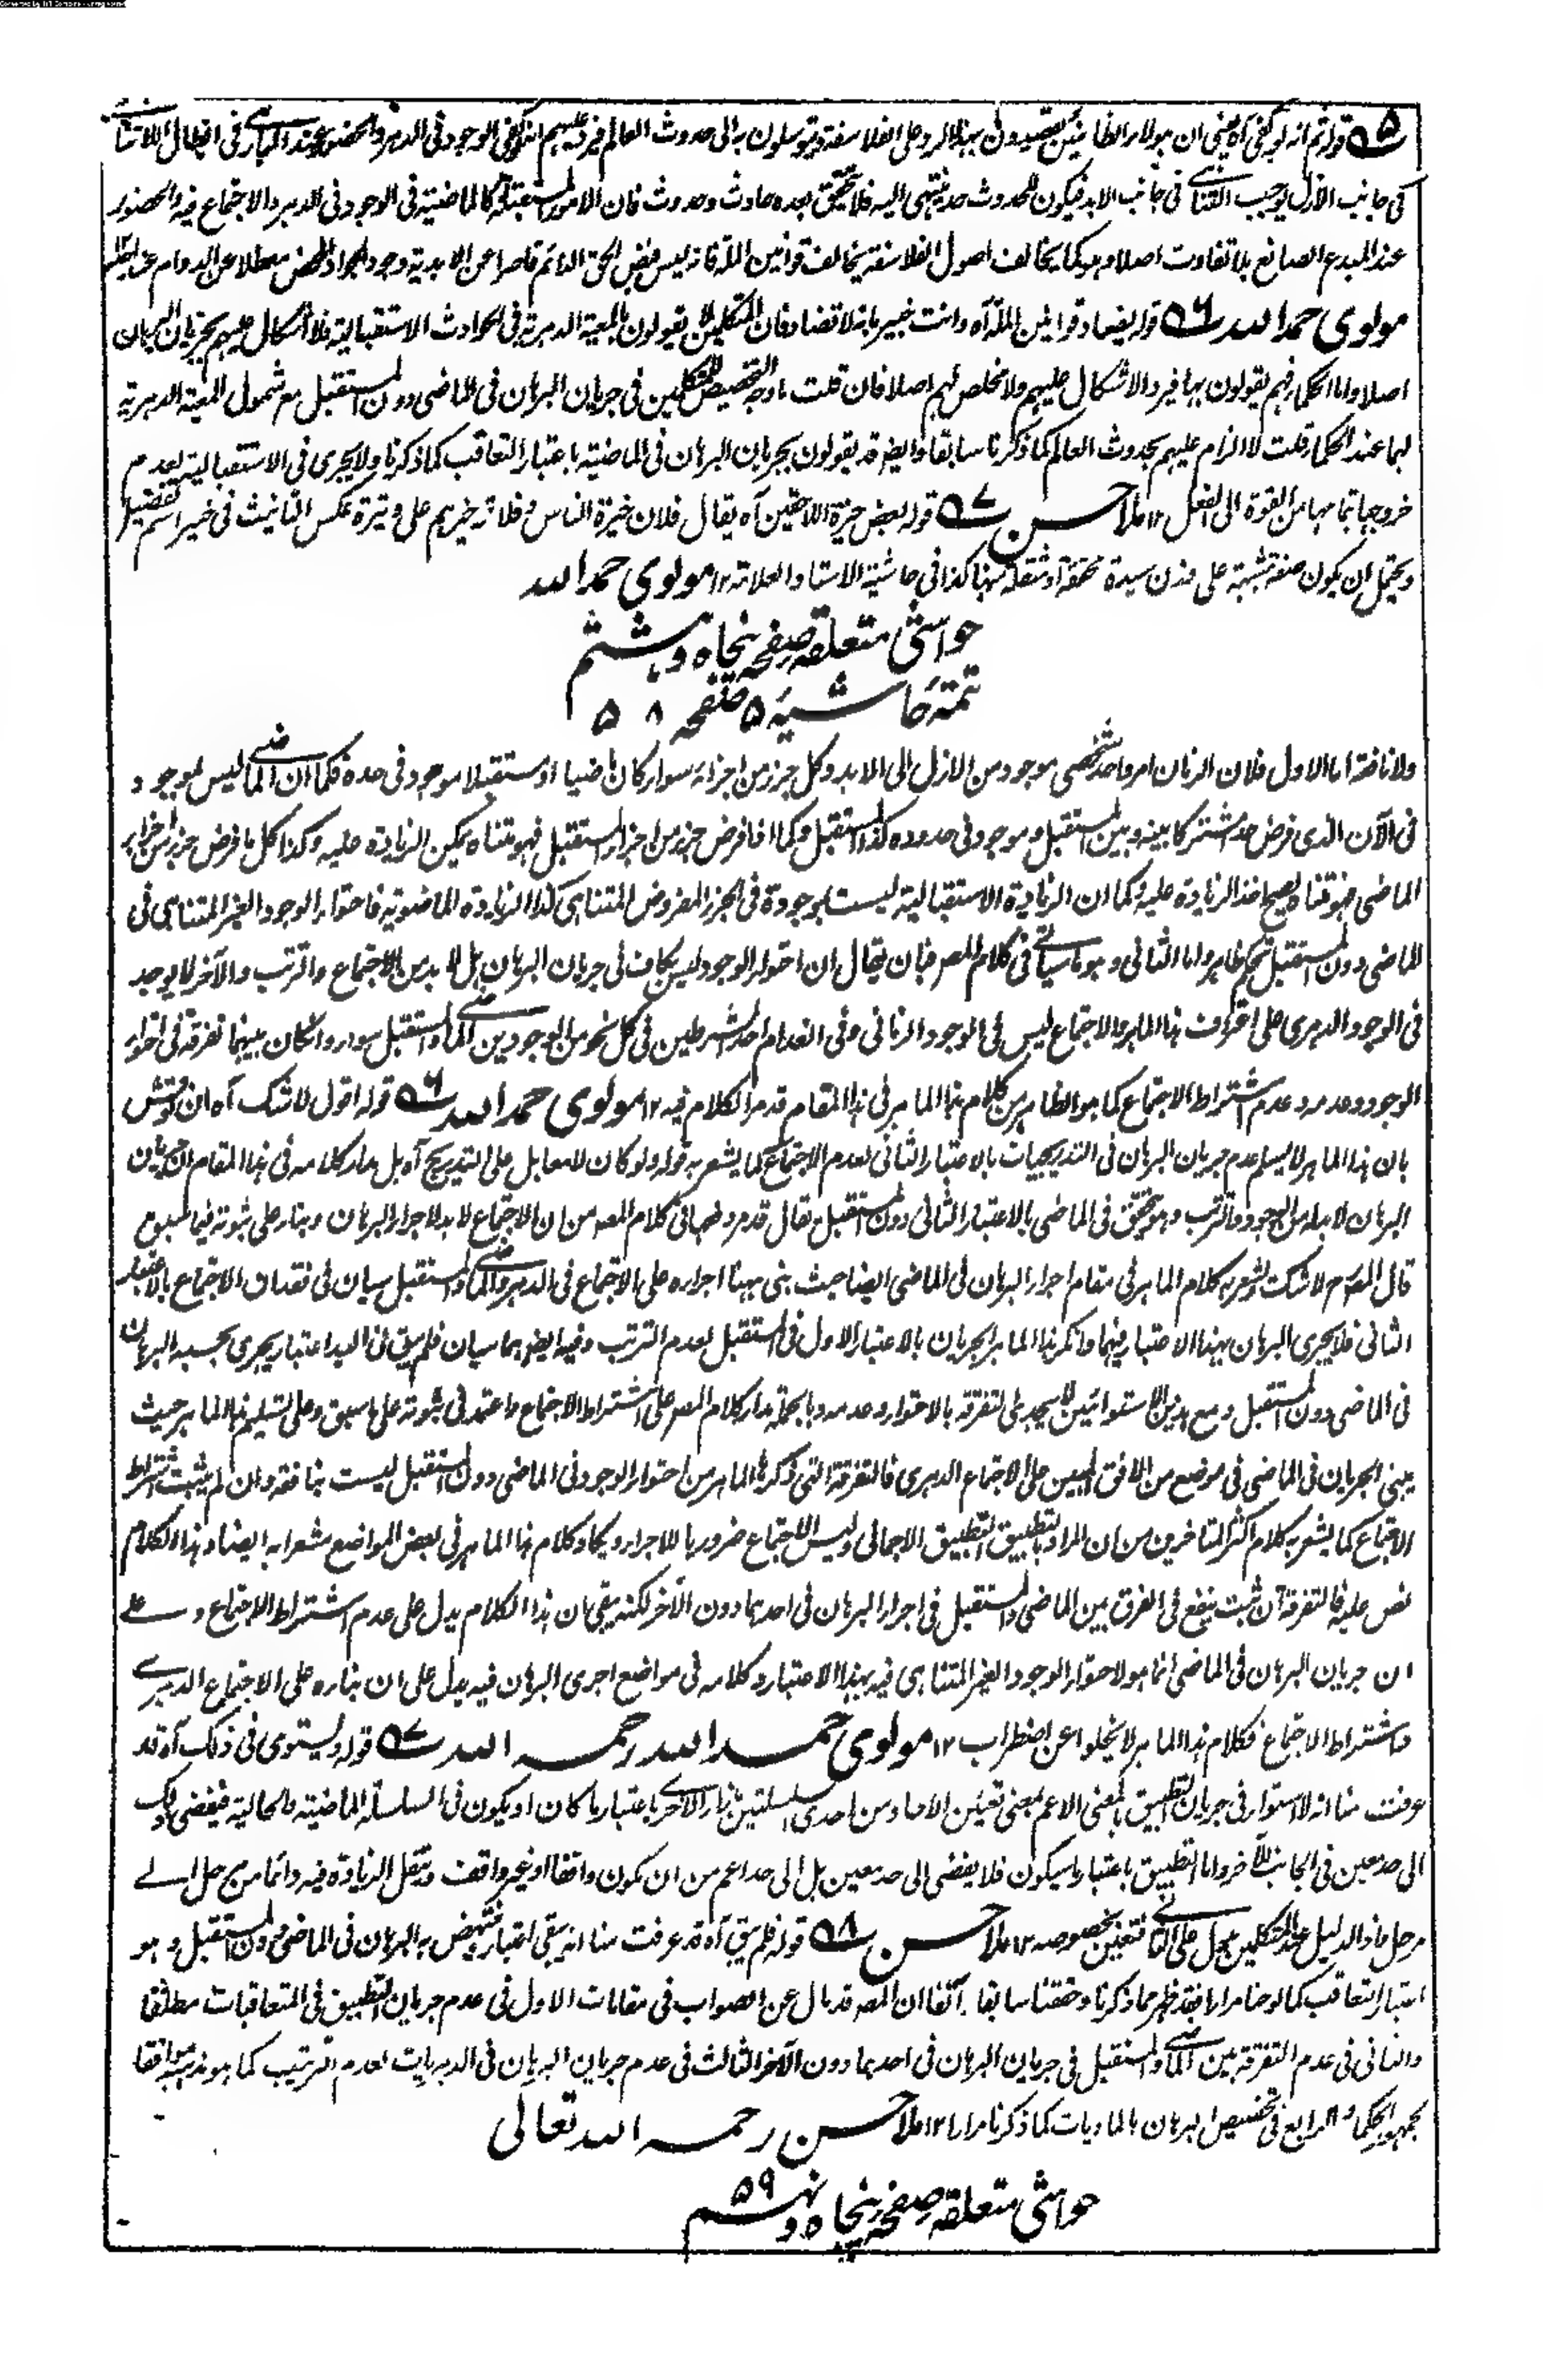 ۵ قوله ثم انه لو كفى آه يعنى ان هولاء الظانين يقصدون بهذا الرد على الفلاسفة ويتوسلون به الى حدوث العالم فيرد عليهم انه لو كفى الوجود فى الدهر والحضور عند البارى فى ابطال اللاتناهى
فى جانب الازل يوجب التناهى فى جانب الابد فيكون للحدوث حد ينتهى اليه فلا يتحقق بعده حادث وحدوث فان الامور المستقبلة كالماضية فى الوجود فى الدهر والاجتماع فيه والحضور
عند المبدع الصانع بلا تفاوت اصلا وهو كما يخالف اصول الفلاسفة يخالف قوانين الملة فانه ليس فيض الحق الدائم قاصرا عن الابدية وجود الجواد المحض معطلا عن الدوام
مولوى حمد الله ۶ قوله يضاد قوانين الملة آه وانت خبير بانه لا تضاد فان المتكلمين لا يقولون بالمعية الدهرية فى الحوادث الاستقبالية فلا اشكال عليهم بجريان البرهان
اصلا واما الحكماء فهم يقولون بها فيرد الاشكال عليهم ولا مخلص لهم اصلا فان قلت ما وجه التخصيص للمتكلمين فى جريان البرهان فى الماضى دون المستقبل مع شمول المعية الدهرية
لهما عند الحكماء قلت لالزام عليهم بحدوث العالم كما ذكرنا سابقا وايضا قد يقولون بجريان البرهان فى الماضية باعتبار التعاقب كما ذكرنا ولا يجرى فى الاستقبالية لعدم
خروجها بتمامها من القوة الى الفعل ۱۲ ملا حسن ۷ قوله بعض خيرة اللاحقين آه يقال فلان خيرة الناس وفلانة خيرهم على وتيرة عكس التانيث فى خير اسم تفضيل
ويحتمل ان يكون صفة مشبهة على وزن سيدة مخففة او مثقلة ههنا كذا فى حاشية الاستاذ العلامة ۱۲ مولوى حمد الله
حواشى متعلقه صفحه پنجاه و هشتم
تتمة حاشية ۵ صفحه ۵۸
ولا نافقة اما الاول فلان الزمان امر واحد شخصى موجود من الازل الى الابد وكل جزء من اجزائه سواء كان ماضيا او مستقبلا موجود فى حده فكما ان الماضى ليس بموجود
فى الآن الذى فرض حدا مشتركا بينه وبين المستقبل وموجود فى حدوده كذا المستقبل وكما اذا فرض جزء من اجزاء المستقبل فهو متناه يمكن الزيادة عليه وكذا كل ما فرض جزء من اجزاء
الماضى فهو متناه يصح اخذ الزيادة عليه وكما ان الزيادة الاستقبالية ليست بموجودة فى الجزء المفروض المتناهى كذا الزيادة الماضوية فاحتواء الوجود الغير المتناهى فى
الماضى دون المستقبل تحكم ظاهر واما الثانى وهو ما سياتى فى كلام المصر فبان يقال ان احتواء الوجود ليس بكاف فى جريان البرهان بل لا بد من الاجتماع والترتب والآخر لا يوجد
فى الوجود الدهرى على اعتراف هذا الماهر والاجتماع ليس فى الوجود الزمانى وفى انعدام احد الشرطين فى كل نحو من الوجودين الماضى والمستقبل سواء وان كان بينهما تفرقة فى احتواء
الوجود وعدمه وعدم اشتراط الاجتماع كما هو الظاهر من كلام هذا الماهر فى هذا المقام قد مر الكلام فيه ۱۲ مولوى حمد الله ۶ قوله اقول لا شك آه ان نوقش
بان هذا الماهر لا يسلم عدم جريان البرهان فى التدريجيات بالاعتبار الثانى لعدم الاجتماع كما يشعر به قوله ولو كان لا معا بل على التدريج آه بل مدار كلامه فى هذا المقام ان جريان
البرهان لا بد له من الوجود والترتب وهو متحقق فى الماضى بالاعتبار الثانى دون المستقبل يقال قد مر فى كلام المصر من ان الاجتماع لا بد لاجراء البرهان وبناء على ثبوته فيما سبق
قال المصرح لا شك ويشعر به كلام الماهر فى مقام اجراء البرهان فى الماضى ايضا حيث بنى ههنا اجراءه على الاجتماع فى الدهر والماضى والمستقبل سيان فى فقدان الاجتماع بالاعتبار
الثانى فلا يجرى البرهان بهذا الاعتبار فيهما وانكر هذا الماهر الجريان بالاعتبار الاول فى المستقبل لعدم الترتب وفيه ايضا هما سيان فلم يبق فى اليد اعتبار يجرى بحسبه البرهان
فى الماضى دون المستقبل ومع هذين الاستوائين لا يجدى التفرقة بالاحتواء وعدمه وبالجملة مدار كلام المصر على اشتراط الاجتماع واعتمد فى ثبوته على ما سبق وعلى تسليم هذا الماهر حيث
يبنى الجريان فى الماضى فى موضع من الافق المبين على الاجتماع الدهرى فالتفرقة التى ذكرها الماهر من احتواء الوجود فى الماضى دون المستقبل ليست بنافعة وان لم يثبت اشتراط
الاجتماع كما يشعر به كلام اكثر المتاخرين من ان المراد بالتطبيق التطبيق الاجمالى وليس الاجتماع ضروريا للاجراء ويكاد كلام هذا الماهر فى بعض المواضع مشعرا به ايضا وهذا الكلام
نص عليه فالتفرقة ان ثبت ينفع فى الفرق بين الماضى والمستقبل فى اجراء البرهان فى احدهما دون الآخر لكنه يبقى ان هذا الكلام يدل على عدم اشتراط الاجتماع وعلى
ان جريان البرهان فى الماضى انما هو لاحتواء الوجود الغير المتناهى فيه بهذا الاعتبار وكلامه فى مواضع اجرى البرهان فيه يدل على ان بناءه على الاجتماع الدهرى
واشتراط الاجتماع فكلام هذا الماهر لا يخلو عن اضطراب ۱۲ مولوى حمد الله رحمه الله ۷ قوله ويستوى فى ذلك آه قد
عرفت منا انه لا استواء فى جريان التطبيق بالمعنى الاعم بمعنى تعيين الآحاد من احدى السلسلتين بازاء الاخرى باعتبار ما كان او يكون فى السلسلة الماضية والحالية فيفضى ذلك
الى حد معين فى الجانب الآخر واما التطبيق باعتبار ما سيكون فلا يفضى الى حد معين بل الى حد اعم من ان يكون واقفا او غير واقف وتنتقل الزيادة فيه دائما من مرحل الى
مرحل هذا الدليل عند المتكلمين يدل على التناهى فتعين بخصوصه ۱۲ ملا حسن ۸ قوله فلم يبق آه قد عرفت منا انه يبقى اعتبار ينتهض به البرهان فى الماضى دون المستقبل وهو
اعتبار التعاقب كما لوحنا مرارا فقد ظهر مما ذكرنا وحققنا سابقا وآنفا ان المصر قد مال عن الصواب فى مقامات الاول فى عدم جريان التطبيق فى المتعاقبات مطلقا
والثانى فى عدم التفرقة بين الماضى والمستقبل فى جريان البرهان فى احدهما دون الآخر الثالث فى عدم جريان البرهان فى الدهريات لعدم الترتيب كما هو مذهبه موافقا
بجمهور الحكماء والرابع فى تخصيص البرهان بالماديات كما ذكرنا مرارا ۱۲ ملا حسن رحمه الله تعالى
حواشى متعلقه صفحه پنجاه و نهم ۵۹